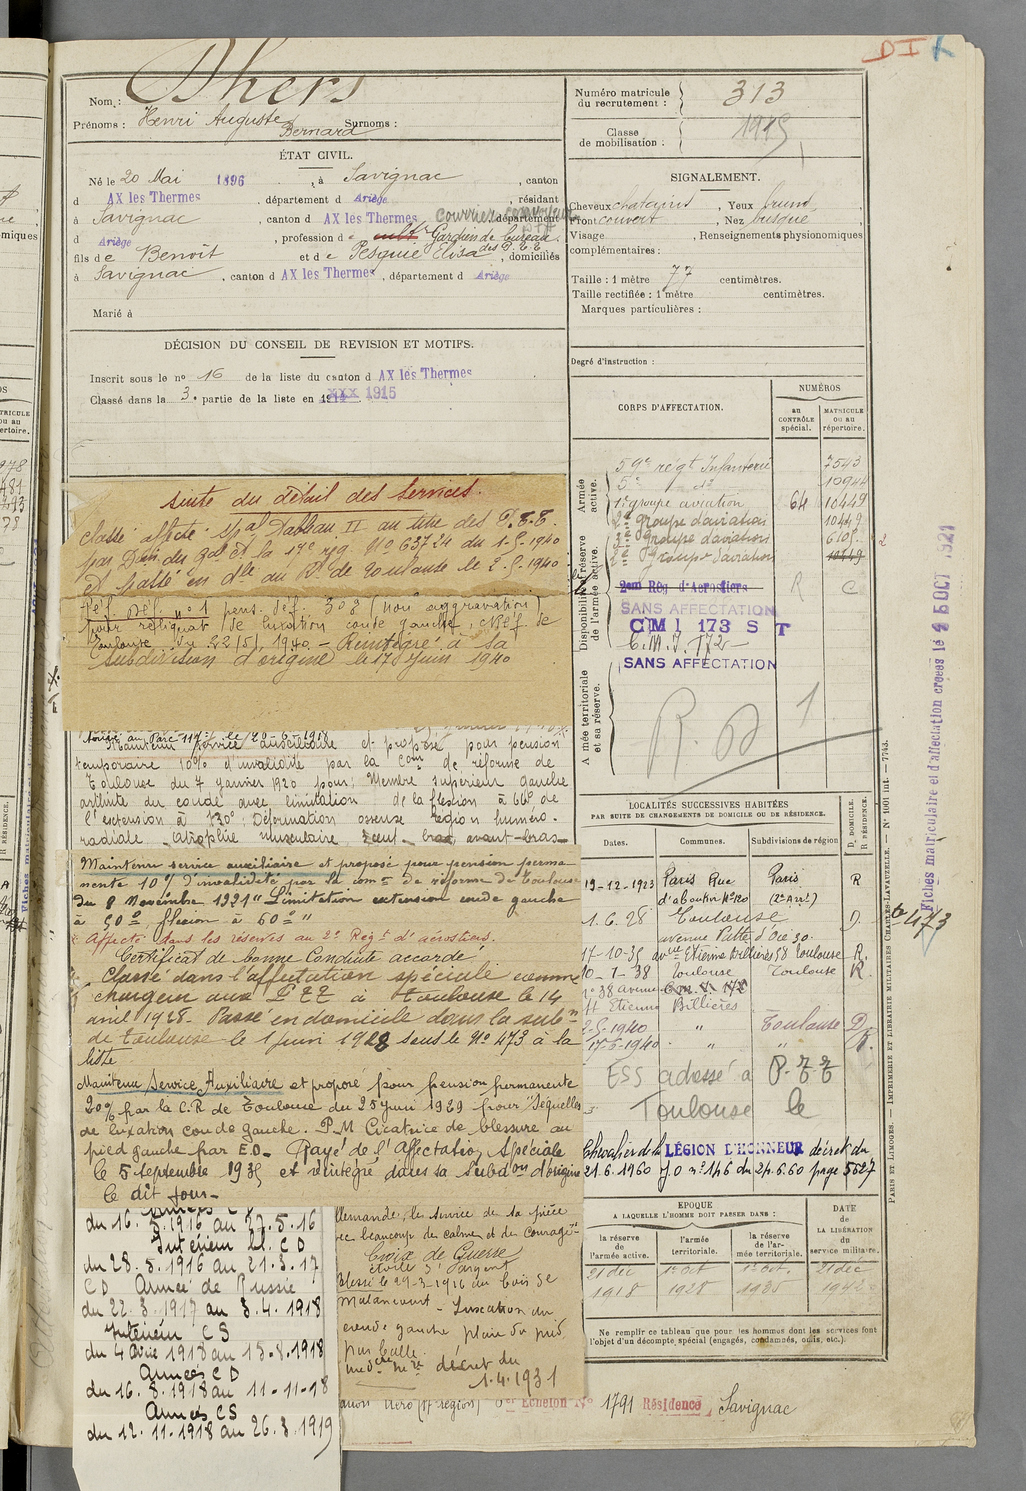 DIK
Nom : Dhers
Prénoms : Henri Auguste Bernard Surnoms :
Numéro matricule du recrutement : 313
Classe de mobilisation : 1915
ÉTAT CIVIL.
Né le 20 Mai 1896, à Savignac, canton
d AX les Thermes, département d Ariège, résidant
à Savignac, canton d AX les Thermes, département
d Ariège, profession de cult^r Gardien de bureau des P.T.T
courrier convoyeur
fils de Benoît et de Pesquié Elisa, domiciliés
à Savignac, canton d AX les Thermes, département d Ariège
Marié à
SIGNALEMENT.
Cheveux châtains, Yeux bruns,
Front couvert, Nez busqué
Visage, Renseignements physionomiques
complémentaires :
Taille : 1 mètre 77 centimètres.
Taille rectifiée : 1 mètre centimètres.
Marques particulières :
DÉCISION DU CONSEIL DE REVISION ET MOTIFS.
Inscrit sous le n° 16 de la liste du canton d AX les Thermes
Classé dans la 3e partie de la liste en 1915
Degré d'instruction :
CORPS D'AFFECTATION.
NUMÉROS
au CONTRÔLE spécial.
MATRICULE ou au répertoire.
Armée active.
59e régt Infanterie 7543
5e d° 10944
1e groupe aviation 64 10449
2e groupe d'aviation 10449
3e groupe d'aviation 6105
2e groupe d'aviation 10449
Disponibilité et réserve de l'armée active.
2em Rég d'Aerostiers R C
SANS AFFECTATION
CMI 173 S T
C.M.I. 172
SANS AFFECTATION
Armée territoriale et sa réserve.
R.D 1
suite du détail des services.
Classé affecté spal Tableau II au titre des P.T.T.
par Don du Gal Ct la 17e rég N° 63724 du 1-5-1940
et passé en dle au Rt de Toulouse le 2-5-1940
Réf. Déf. n° 1 pens. déf. 30% (non aggravation)
pour reliquat de luxation coude gauche, CRéf de
Toulouse du 22/5/1940 - Réintégré à sa
subdivision d'origine le 17 juin 1940
Maintenu service auxiliaire et proposé pour pension
temporaire 10% d'invalidité par la Com de réforme de
Toulouse du 7 janvier 1920 pour: Membre supérieur gauche
arthrite du coude avec limitation de la flexion à 60° de
l'extension à 130°, Déformation osseuse région huméro-
radiale atrophie musculaire
Maintenu service auxiliaire et proposé pour pension perma-
nente 10% d'invalidité par la com° de réforme de Toulouse
du 8 Novembre 1921 "Limitation extension coude gauche
à 50° flexion à 60°"
Affecté dans les réserves au 2e Régt d'aérostiers.
Certificat de bonne Conduite accordé
Classé dans l'affectation spéciale comme
chargeur aux PTT à Toulouse le 14
avril 1928. Passé en domicile dans la subon
de Toulouse le 1 juin 1928 sous le N° 473 à la
liste
Maintenu Service Auxiliaire et proposé pour pension permanente
20% par la C.R de Toulouse du 25 juin 1929 pour "Séquelles
de luxation coude gauche. PM Cicatrice de blessure au
pied gauche par E.O. Rayé de l'Affectation Spéciale
le 5 septembre 1935 et réintégré dans sa Subdon d'origine
le dit jour-
du 16. 5.1916 au 27.5.16
Intérieur bl. CD
du 28.5.1916 au 21.3.17
CD Armée de Russie
du 22.3.1917 au 3.4.1918
Intérieur CS
du 4 Avril 1918 au 15.8.1918
Armées CD
du 16.8.1918 au 11-11-18
Armées CS
du 12.11.1918 au 26.3.1919
llemande, le service de sa pièce
avec beaucoup de calme et de courage"
Croix de Guerre
étoile d'argent
Blessé le 29-3-1916 au bois de
Malancourt - Luxation du
coude gauche plaie du pied
par balle.
décret du
1.4.1931
LOCALITÉS SUCCESSIVES HABITÉES
PAR SUITE DE CHANGEMENTS DE DOMICILE OU DE RÉSIDENCE.
Dates. Communes. Subdivisions de région D. DOMICILE. R. RÉSIDENCE.
19-12-1923 Paris Rue d'aboukir N°120 Paris (2e Arrt) R
1.6.28 Toulouse avenue Patte d'Oie 30. D.
17-10-35 avue Etienne Billières 58 Toulouse R.
10-1-38 Toulouse Toulouse R.
n° 38 avenue
Etienne Billières
2-5-1940 " Toulouse D
17-6-1940 " " R.
ESS adressé à P.T.T
Toulouse le
Chevalier de la LÉGION D'HONNEUR décret du
21.6.1960 JO n° 146 du 24.6.60 page 5627
EPOQUE
A LAQUELLE L'HOMME DOIT PASSER DANS :
la réserve de l'armée active.
l'armée territoriale.
la réserve de l'armée territoriale.
DATE de LA LIBÉRATION du service militaire.
21 déc 1918
1er oct 1928
1er oct. 1935
21 déc 1942
Ne remplir ce tableau que pour les hommes dont les services font
l'objet d'un décompte spécial (engagés, condamnés, omis, etc.).
Echelon N° 1791 Résidence, Savignac
PARIS ET LIMOGES. — IMPRIMERIE ET LIBRAIRIE MILITAIRES CHARLES-LAVAUZELLE. — N° 1001 int. — 7743.
Fiches matriculaire et d'affectation créées le OCT 1921
473